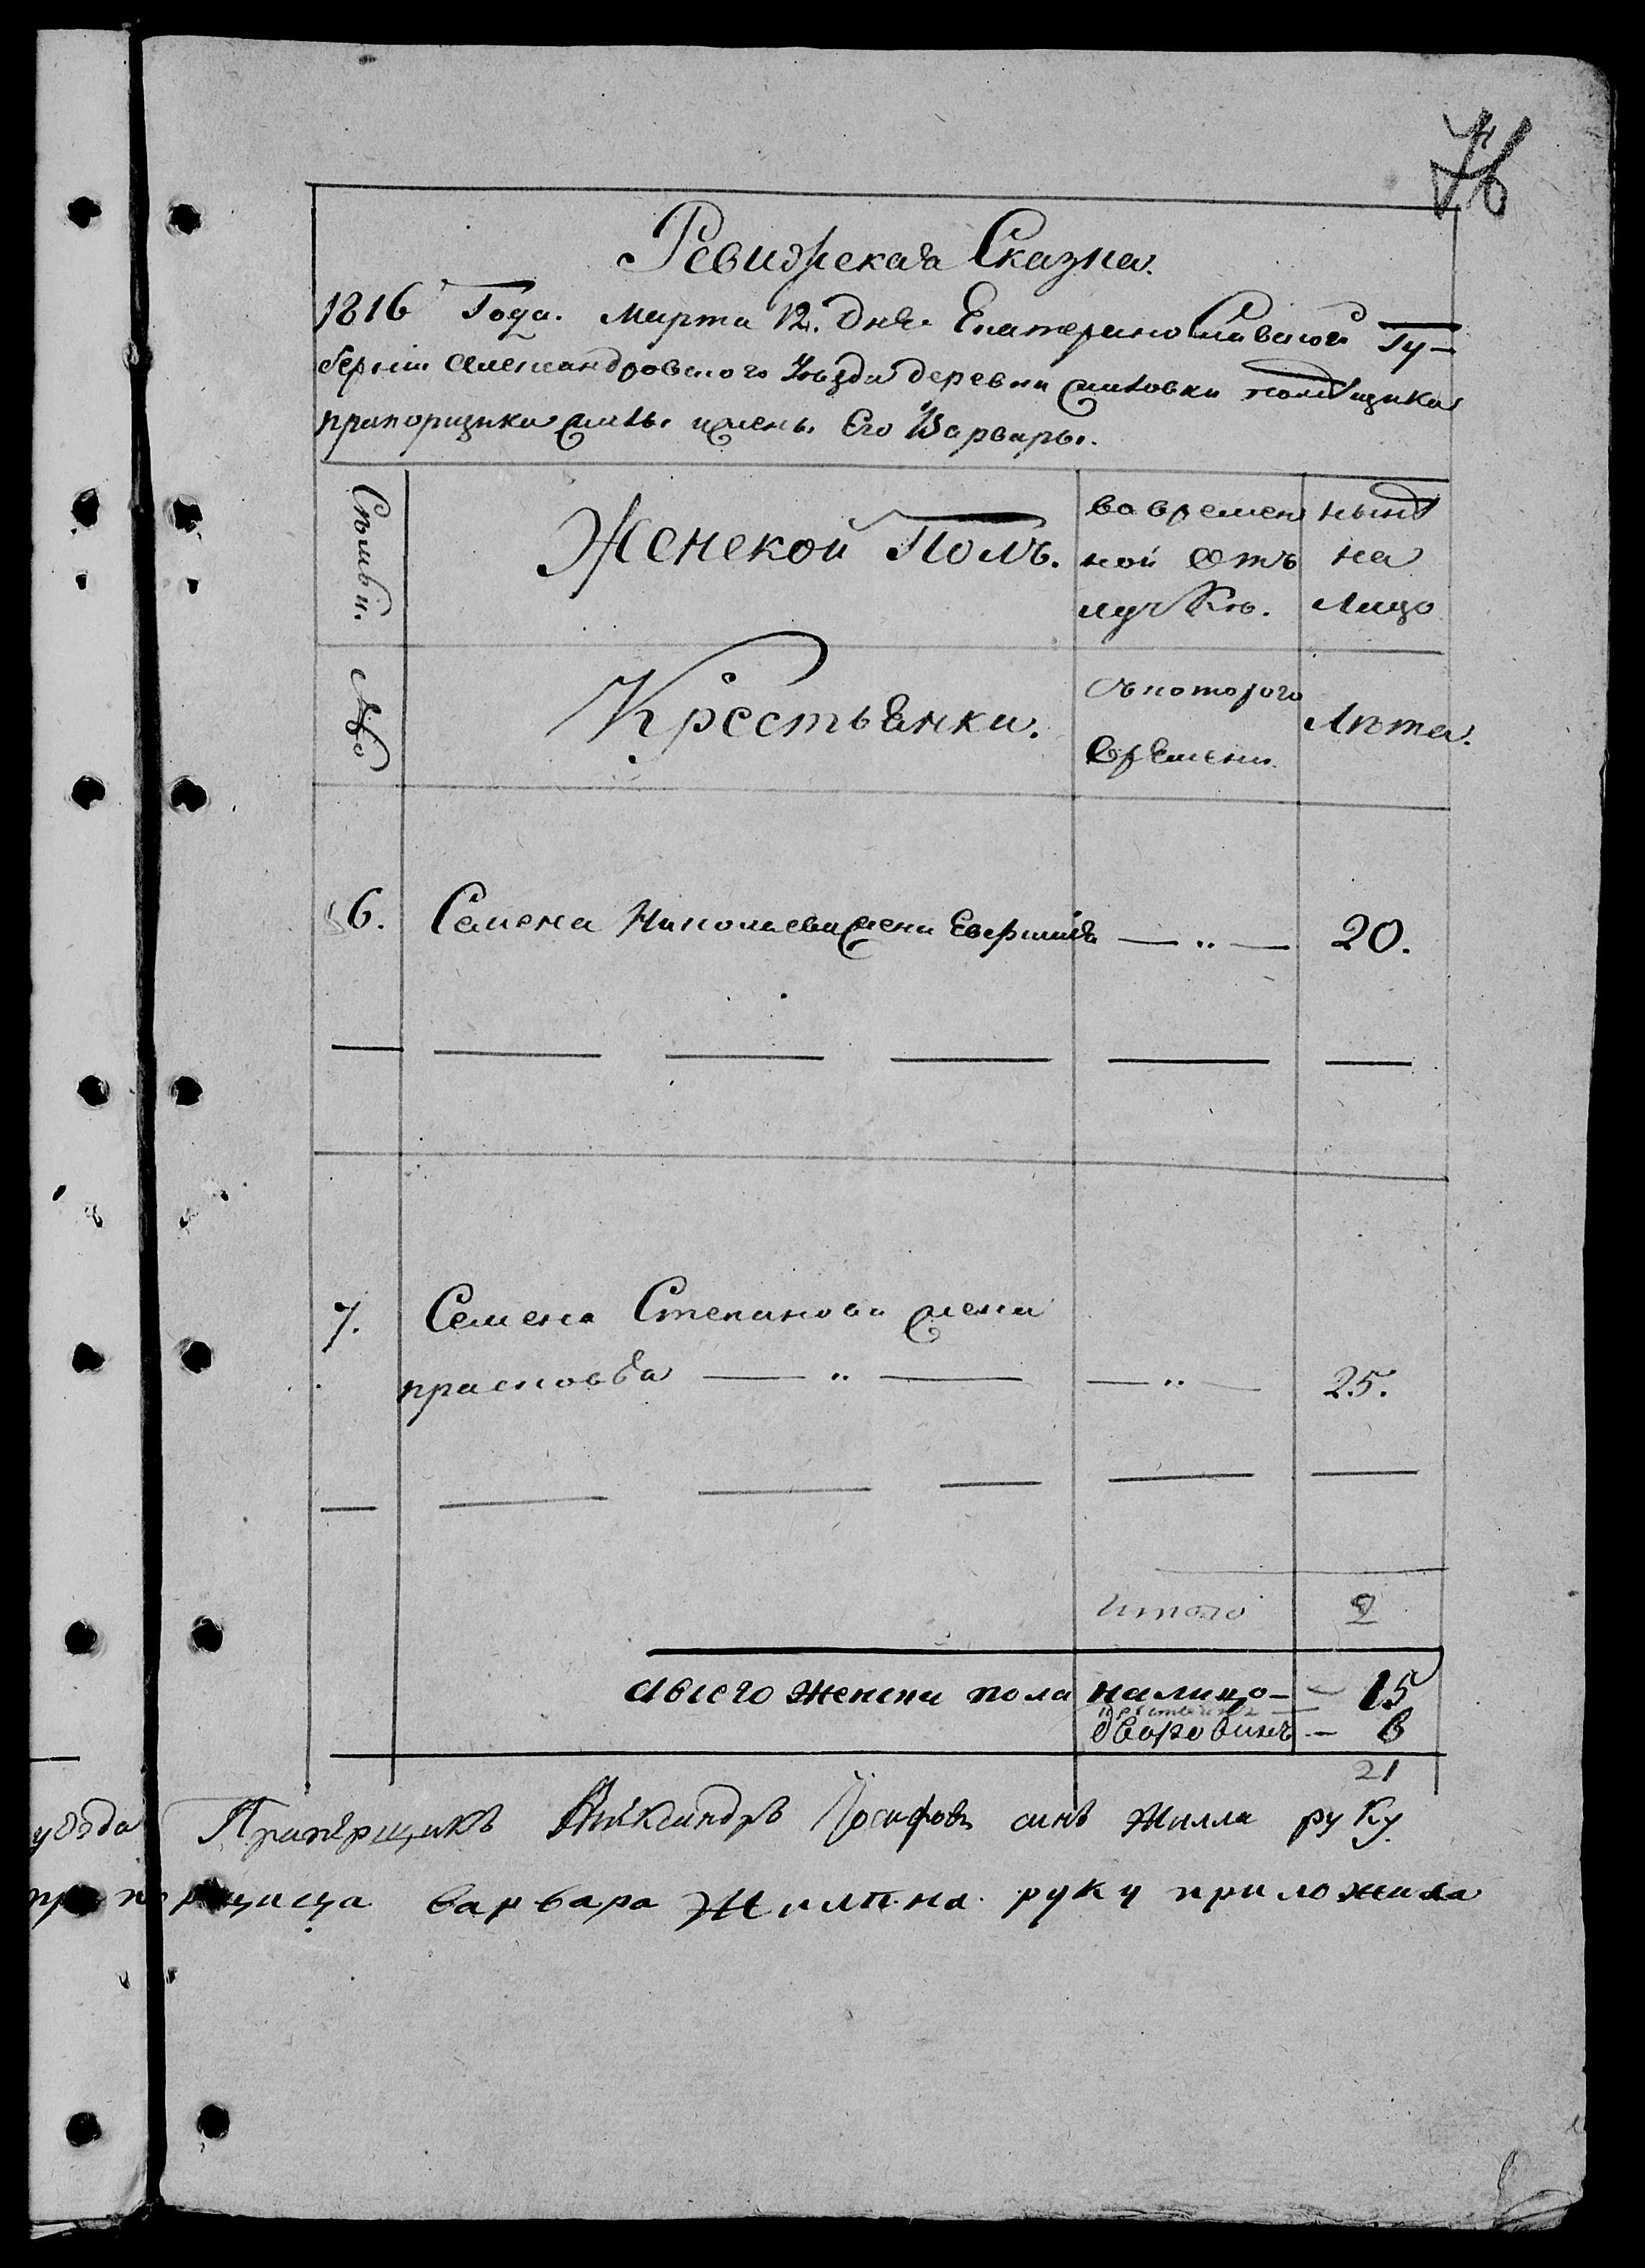 76
Ревизская Сказка.
1816 Года. Марта 12. Дня Екатеринославской Гу-
берніи Александровского Уѣзда деревни помѣщика
прапорщика жены Его Варвары.
Семьи.
Женской Полъ.
во времен
ной отъ
лучкѣ.
нынѣ
на
лицо
№
Крестьянки.
съ которого
времени.
Лѣта.
6. Семена Николаева жена — „ — 20.
7. Семена Степанова жена
прасковья — „ — — „ — 25.
итого 2
Авсего женска пола налицо — 15
дворовихъ — 6
21
уезда Прапорщикъ Александръ Іосифовъ синъ Жилла руку
прапорщица варвара Жилина руку приложила